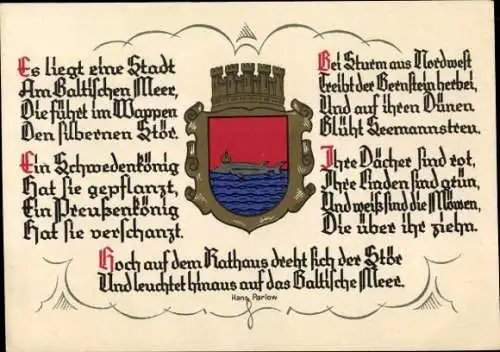 Es liegt eine Stadt
Am Baltischen Meer,
Die führt im Wappen
Den silbernen Stör.
Ein Schwedenkönig
Hat sie gepflanzt,
Ein Preußenkönig
Hat sie verschanzt.
Bei Sturm aus Nordwest
Treibt der Bernstein herbei,
Und auf ihren Dünen
Blüht Seemannstreu.
Ihre Dächer sind rot,
Ihre Linden sind grün,
Und weiß sind die Möwen,
Die über ihr ziehn.
Hoch auf dem Rathaus dreht sich der Stör
Und leuchtet hinaus auf das Baltische Meer.
Hans Parlow